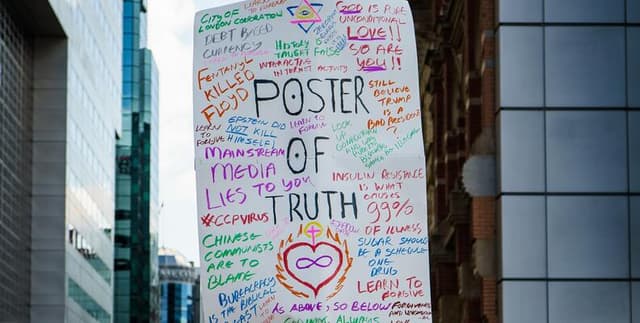 LEARN TO FORGIVE
CITY OF
LONDON CORPORATION
DEBT BASED
CURRENCY
FENTANYL
KILLED
FLOYD
HISTORY
TAUGHT FALSE
INTERACTING
INTERNET ACTIVITY
GOD IS PURE
UNCONDITIONAL
LOVE!!
SO ARE
YOU!!
STILL
BELIEVE
TRUMP
IS A
BAD PRESIDENT
?
POSTER
OF
TRUTH
LEARN
TO
FORGIVE
EPSTEIN DID
NOT KILL
HIMSELF)
LEARN TO
FORGIVE
LOOK
UP
MAINSTREAM
MEDIA
LIES TO YOU
#CCPVIRUS
CHINESE
COMMUNISTS
ARE TO
BLAME
BUREAUCRACY
IS THE BIBLICAL
BEAST
INSULIN RESISTANCE
IS WHAT
CAUSES
99%
OF ILLNESS
SUGAR SHOULD
BE A SCHEDULE
ONE
DRUG
LEARN TO
FORGIVE
AS ABOVE, SO BELOW
FORGIVENESS
AND
ALWAYS
LOVE